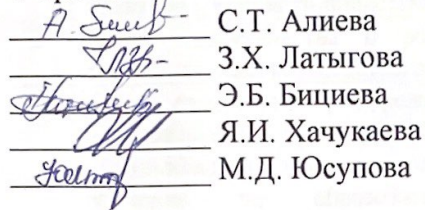 С.Т. Алиева
З.Х. Латыгова
Э.Б. Бициева
Я.И. Хачукаева
М.Д. Юсупова